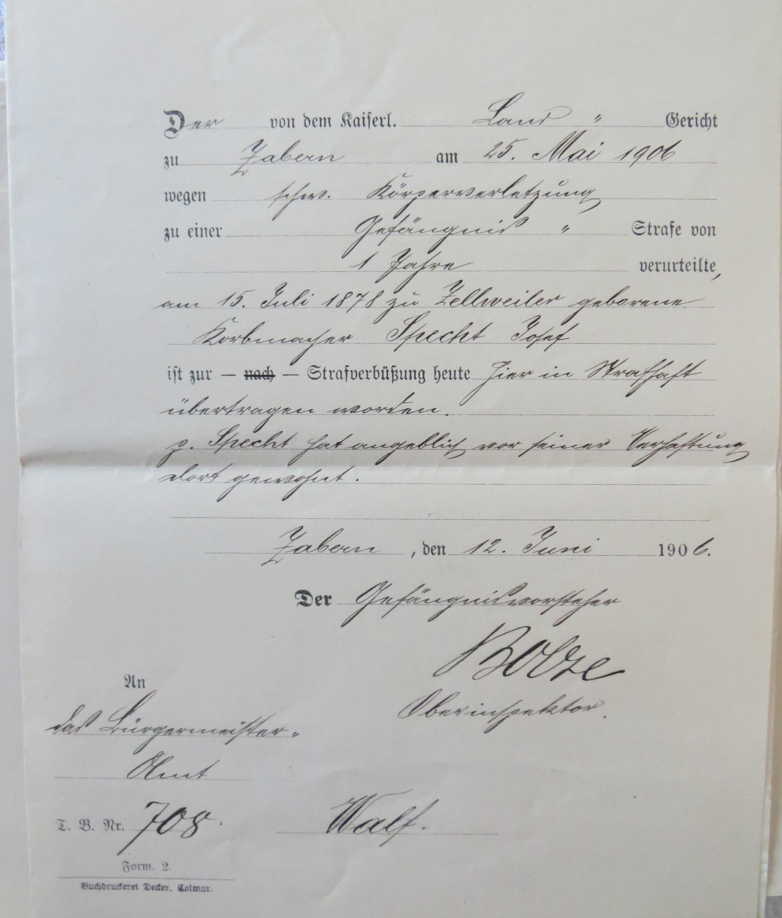 Der von dem Kaiserl. Land " Gericht
zu Zabern am 25. Mai 1906
wegen schw. Körperverletzung
zu einer Gefängnis " Strafe von
1 Jahre verurteilte,
am 15. Juli 1878 zu Zellweiler geborene
Korbmacher Specht Josef
ist zur — nach — Strafverbüßung heute hier in Strafhaft
übertragen worden.
p. Specht hat angeblich vor seiner Verhaftung
dort gewohnt.
Zabern, den 12. Juni 1906.
Der Gefängnisvorsteher
Oberinspektor.
An
das Bürgermeister-
Amt
T. B. Nr. 708. Walf.
Form. 2.
Buchdruckerei Decker, Colmar.